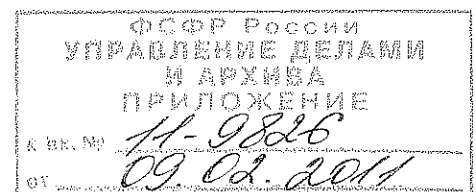 ФСФР России
УПРАВЛЕНИЕ ДЕЛАМИ
И АРХИВА
ПРИЛОЖЕНИЕ
к вх. № 11-9826
от 09 02. 2011